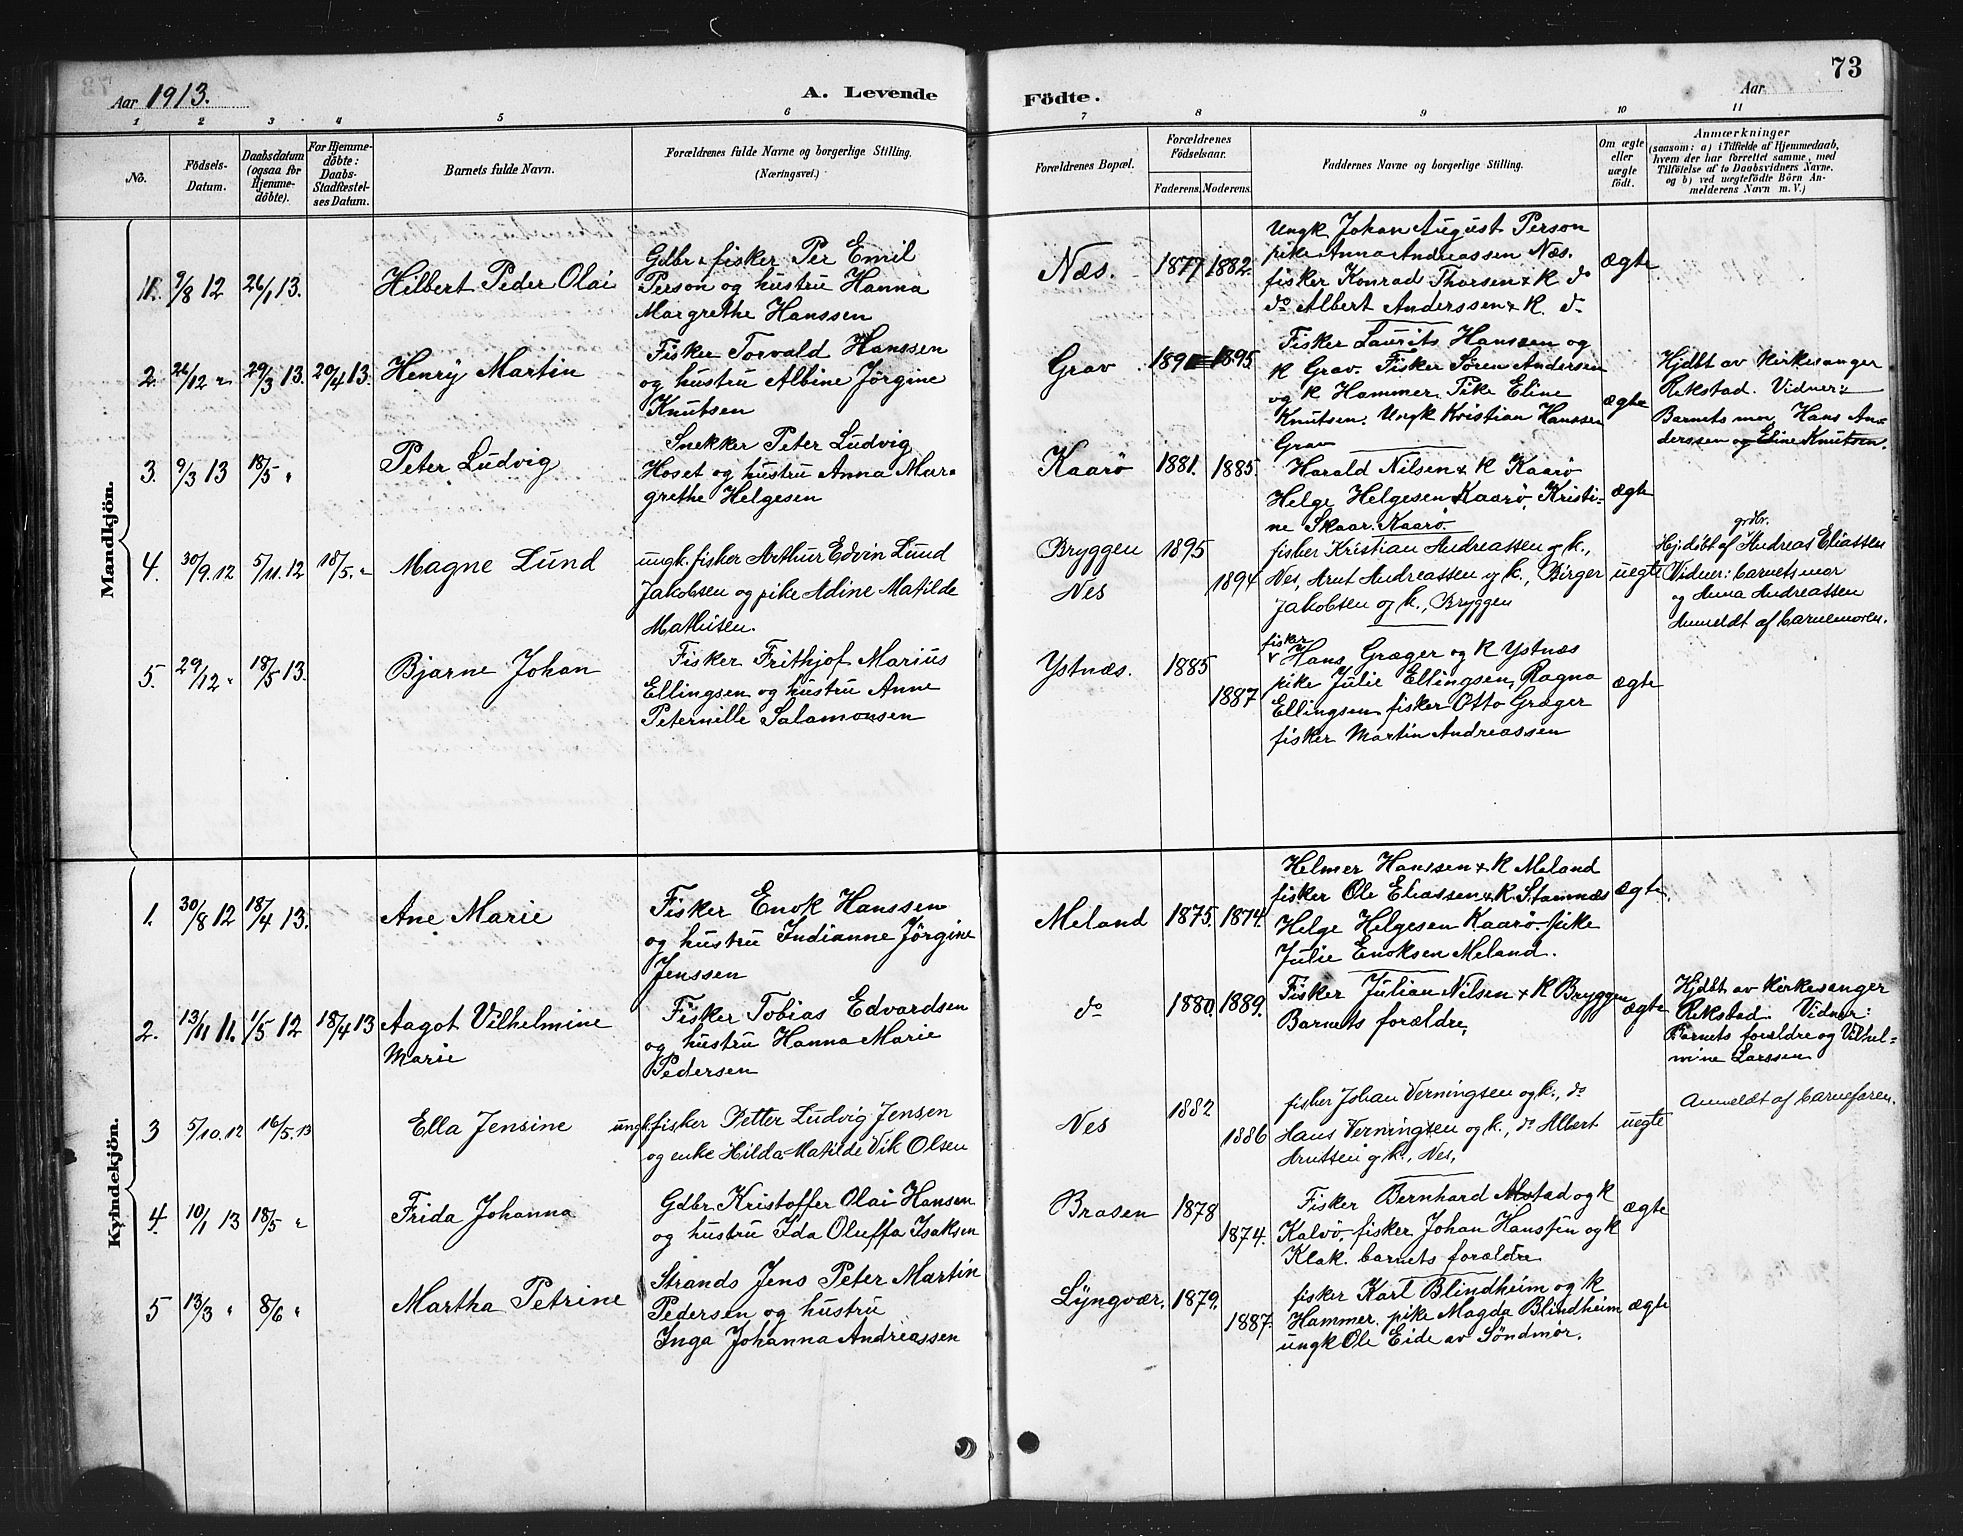 Aar 1913.
A. Levende
Födte.
Aar
73
1 2 3 4 5 6 7 8 9 10 11
No.
Födsels-Datum.
Daabsdatum (ogsaa for Hjemmedöbte).
For Hjemmedöbte: Daabs-Stadfæstelses Datum.
Barnets fulde Navn.
Forældrenes fulde Navne og borgerlige Stilling. (Næringsvei.)
Forældrenes Bopæl.
Forældrenes Födselsaar.
Faderens. Moderens.
Faddernes Navne og borgerlige Stilling.
Om ægte eller uægte födt.
Anmærkninger
(saasom: a) i Tilfælde af Hjemmedaab,
hvem der har forrettet samme, med
Tilföielse af to Daabsvidners Navne,
og b) ved uægtefödte Börn Anmelderens Navn m. V.)
Mandkjön.
1. 9/8 12 26/1 13.
Hilbert Peder Olai
Gdbr & fisker Per Emil
Person og hustru Hanna
Margrethe Hanssen
Næs. 1877 1882.
Ungk Johan August Person
pike Anna Andreassen Næs.
fisker Konrad Thorsen & K do
do Albert Anderssen & K. do
ægte
2. 26/12 " 29/3 13. 20/4 13.
Henry Martin
Fisker Torvald Hanssen
og hustru Albine Jörgine
Knutsen
Grav 1891 1895
Fisker Laurits Hanssen og
K Grav. Fisker Sören Andersen
og K Hammer. Pike Eline
Knutsen. Ungk Kristian Hanssen
Grav
ægte
Hjdbt av Kirkesanger
Rekstad. Vidner:
Barnets mor, Hans An-
derssen og Eline Knutsen.
3. 9/3 13 18/5 "
Peter Ludvig
Snekker Peter Ludvig
Hoset og hustru Anna Mar-
grethe Helgesen
Kaarö 1881. 1885.
Harald Nilsen & K Kaarö
Helge Helgesen Kaarö, Kristi-
ne Skaar. Kaarö.
ægte
4. 30/9. 12 5/11. 12 18/5. "
Magne Lund
ungk. fisker Arthur Edvin Lund
Jakobsen og pike Adine Matilde
Mathisen.
Bryggen 1895
Nes 1894
fisker Kristian Andreassen og k.,
Nes, Arnt Andreassen og k., Birger
Jakobsen og k., Bryggen
uegte
grdbr.
Hj.döbt af Andreas Eliassen
Vidner: barnets mor
og Anna Andreassen
Anmeldt af barnemoren.
5. 29/12 " 18/5 13.
Bjarne Johan
Fisker Frithjof Marius
Ellingsen og hustru Anne
Peternille Salamonsen
Ystnæs. 1885
1887
fisker
Hans Græger og K Ystnæs
pike Julie Ellingsen, Ragna
Ellingsen fisker Otto Græger
fisker Martin Andreassen
ægte
Kvindekjön.
1. 30/8 12 18/4 13.
Ane Marie
Fisker Enok Hanssen
og hustru Indianne Jörgine
Jenssen
Meland 1875. 1874.
Helmer Hanssen & K Meland
fisker Ole Eliassen & K. Stamnæs
Helge Helgesen Kaarö. pike
Julie Enoksen Meland.
ægte.
2. 13/11 11. 1/5 12 18/4 13
Aagot Vilhelmine
Marie
Fisker Tobias Edvardsen
og hustru Hanna Marie
Pedersen
do 1880. 1889.
Fisker Julian Nilsen & K Bryggen
Barnets forældre,
ægte
Hjdbt av Kirkesanger
Rekstad. Vidner:
Barnets forældre og Vilhel-
mine Larssen
3 5/10. 12 16/5. 13
Ella Jensine
ungk. fisker Petter Ludvig Jensen
og enke Hilda Matilde Vik Olsen
Nes 1882
1886
fisker Johan Verningsen og k., do
Hans Verningsen og k., do Albert
Arntsen og k., Nes,
uegte
Anmeldt af barnefaren.
4. 10/1 13 18/5 "
Frida Johanna
Gdbr Kristoffer Olai Hansen
og hustru Ida Oluffa Isaksen
Brasen 1878
1874.
Fisker Bernhard Mostad og K
Kalvö, fisker Johan Hanssen og K
Klak. barnets forældre
ægte
5 13/3 " 8/6 "
Martha Petrine
Strands. Jens Peter Martin
Pedersen og hustru
Inga Johanna Andreassen
Lyngvær, 1879.
1887.
fisker Karl Blindheim og K
Hammer. pike Magda Blindheim
ungk Ole Eide av Söndmör.
ægte